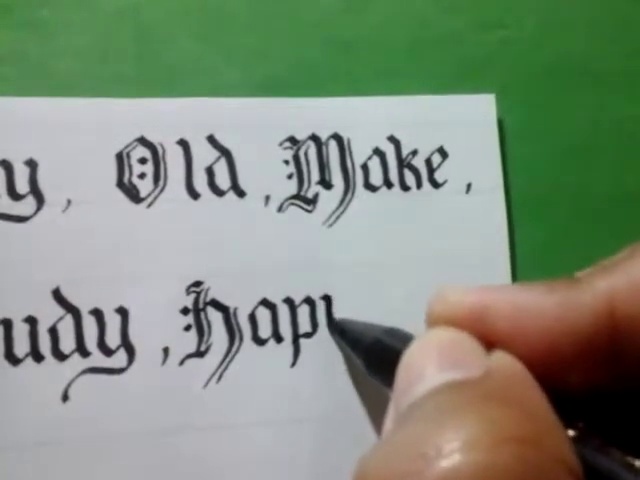 y, Old, Make,
udy, Hap